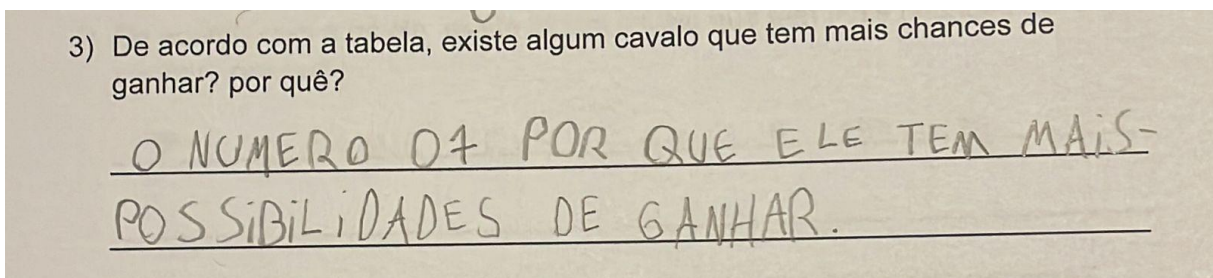 3) De acordo com a tabela, existe algum cavalo que tem mais chances de
ganhar? por quê?
O NUMERO 07 POR QUE ELE TEM MAIS-
POSSIBILIDADES DE GANHAR.